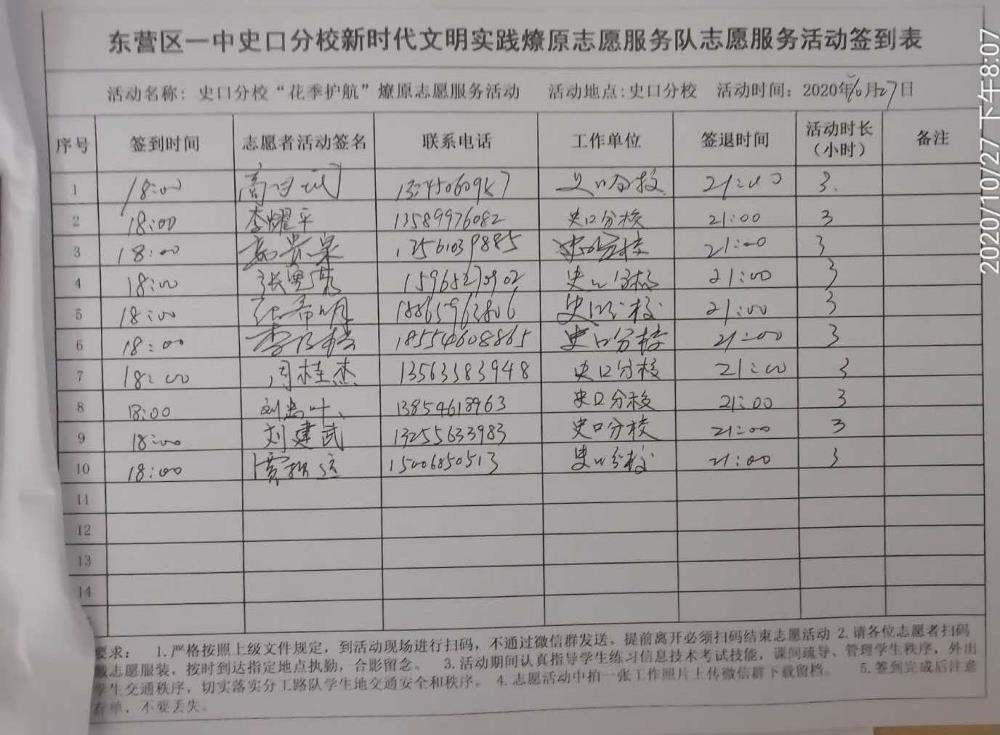 东营区一中史口分校新时代文明实践燎原志愿服务队志愿服务活动签到表
活动名称：史口分校“花季护航”燎原志愿服务活动 活动地点：史口分校 活动时间：2020年10月27日
序号 签到时间 志愿者活动签名 联系电话 工作单位 签退时间 活动时长（小时） 备注
1 18:00 史口分校 21:00 3
2 18:00 李耀平 13589976082 史口分校 21:00 3
3 18:00 13561039885 史口分校 21:00 3
4 18:00 史口分校 21:00 3
5 18:00 张希明 18865963806 史口分校 21:00 3
6 18:00 18554608865 史口分校 21:00 3
7 18:00 周桂杰 13563383948 史口分校 21:00 3
8 18:00 13854618963 史口分校 21:00 3
9 18:00 刘建武 13255633983 史口分校 21:00 3
10 18:00 15006050513 史口分校 21:00 3
11
12
13
14
要求： 1.严格按照上级文件规定，到活动现场进行扫码，不通过微信群发送，提前离开必须扫码结束志愿活动 2.请各位志愿者扫码
戴志愿服装，按时到达指定地点执勤，合影留念。 3.活动期间认真指导学生练习信息技术考试技能，课间疏导、管理学生秩序，外出
学生交通秩序，切实落实分工路队学生地交通安全和秩序。 4.志愿活动中拍一张工作照片上传微信群下载留档。 5.签到完成后注意
存单，不要丢失。
2020/10/27 下午8:07